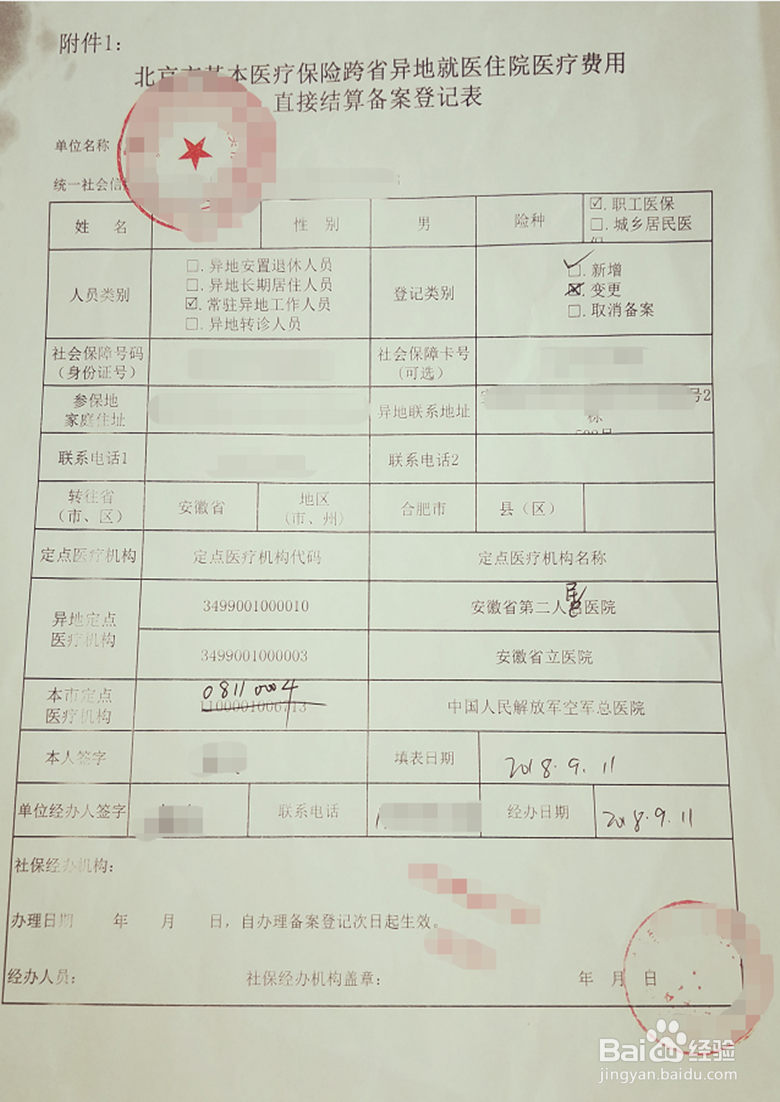 附件1:
北京市基本医疗保险跨省异地就医住院医疗费用
直接结算备案登记表
单位名称
统一社会信
姓 名 性 别 男 险种 ☑.职工医保
□.城乡居民医
人员类别 □.异地安置退休人员
□.异地长期居住人员
☑.常驻异地工作人员
□.异地转诊人员
登记类别 □.新增
☒.变更
□.取消备案
社会保障号码
(身份证号)
社会保障卡号
(可选)
参保地
家庭住址
异地联系地址 号2
栋
联系电话1 联系电话2
转往省
(市、区)
安徽省 地区
(市、州)
合肥市 县(区)
定点医疗机构 定点医疗机构代码 定点医疗机构名称
异地定点
医疗机构
3499001000010 安徽省第二人民医院
3499001000003 安徽省立医院
本市定点
医疗机构
08110004
1100001006713 中国人民解放军空军总医院
本人签字 填表日期 2018.9.11
单位经办人签字 联系电话 经办日期 2018.9.11
社保经办机构:
办理日期 年 月 日,自办理备案登记次日起生效。
经办人员: 社保经办机构盖章: 年 月 日
Baidu经验
jingyan.baidu.com